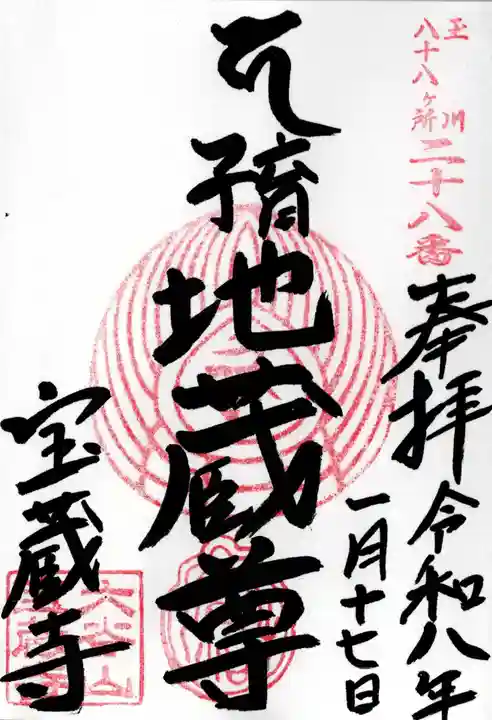 玉川
八十八ヶ所
二十八番
奉拝
令和八年
一月十七日
子育地蔵尊
宝蔵寺